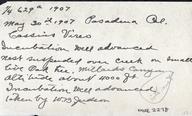 629a 1907
May 30th 1907 Pasadena Cal.
Cassins Vireo
Incubation Well advanced
nest suspended over creek on small
live Oak tree, Millards Canyon
altitude about 4000 ft
Incubation Well advanced
taken by Judson